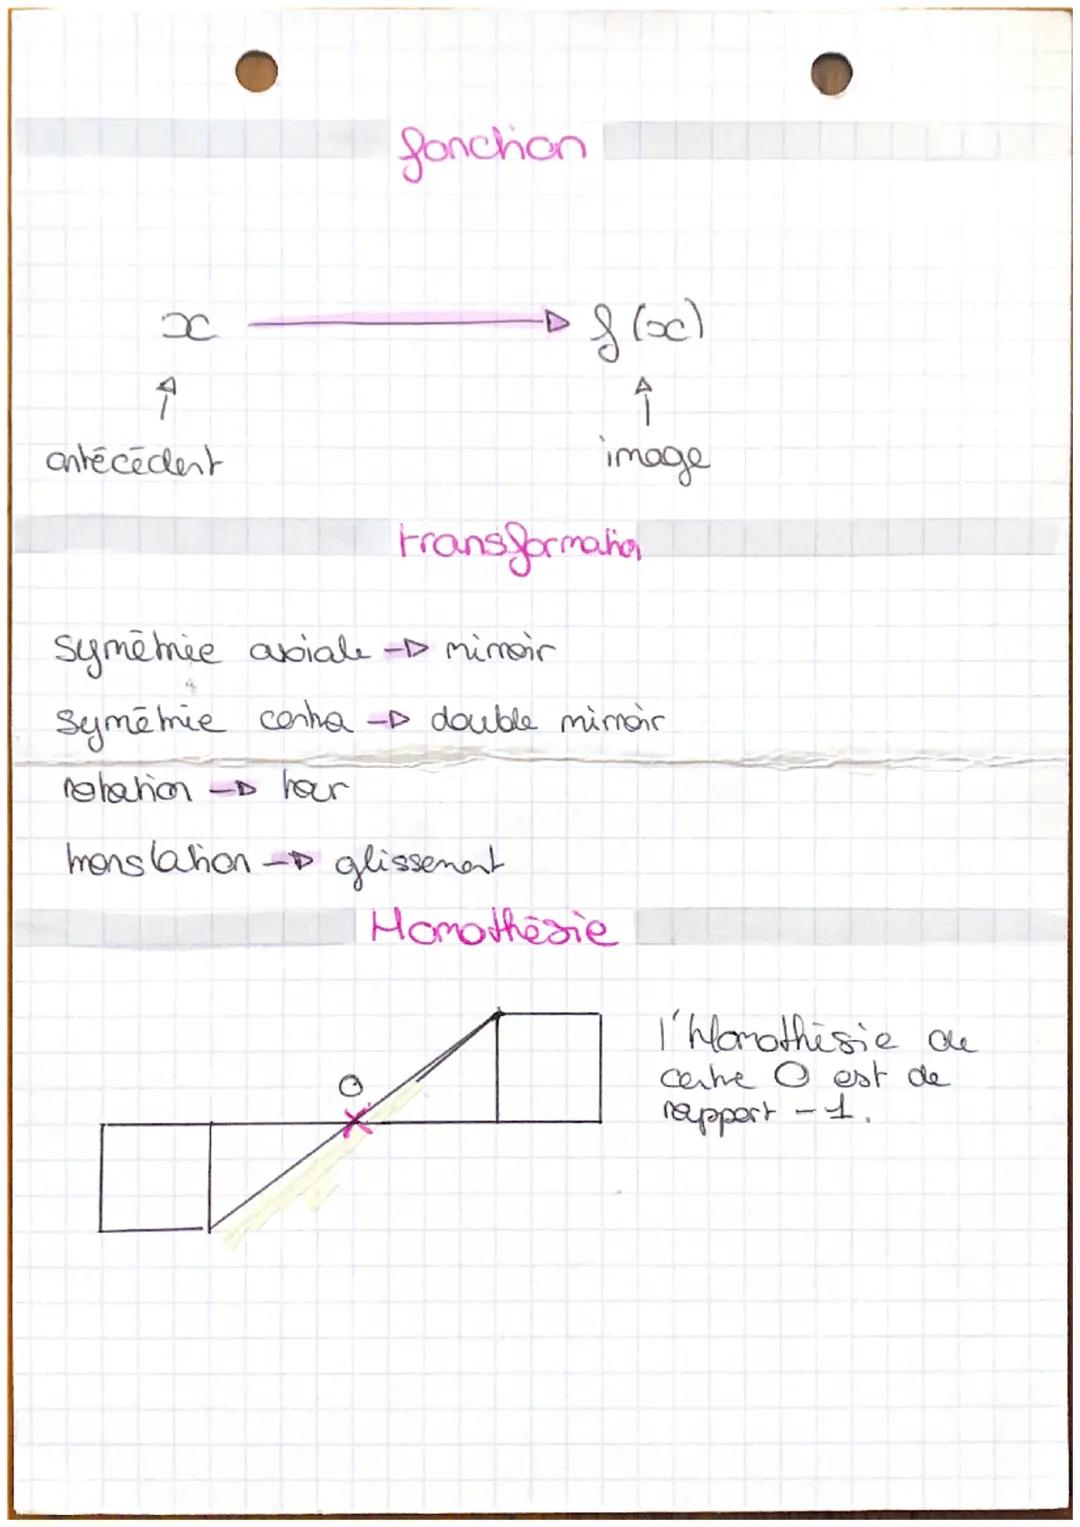 fonction
x → f(x)
↑ ↑
antécédent image
transformation
symétrie axiale → miroir
symétrie centra → double miroir
rotation → tour
translation → glissement
Homothésie
O
l'Homothésie de
centre O est de
rapport -1.